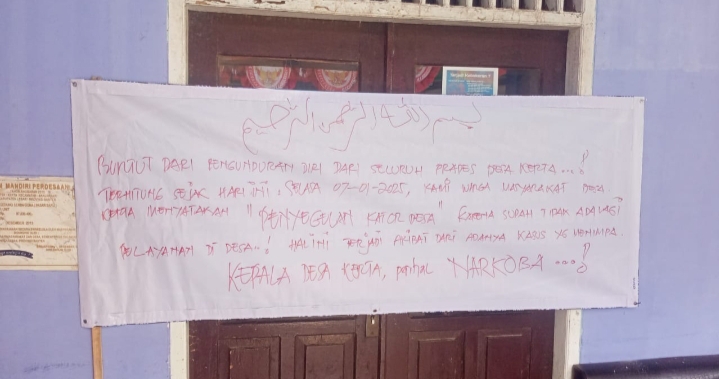 بسم الله الرحمن الرحيم
BUNTUT DARI PENGUNDURAN DIRI DARI SELURUH PRADES DESA KERTA...!
TERHITUNG SEJAK HARI INI, SELASA 07-01-2025, KAMI WARGA MASYARAKAT DESA
KERTA MENYATAKAN "PENYEGELAN KATOR DESA" KARENA SUDAH TIDAK ADA LAGI
PELAYANAN DI DESA..! HAL INI TERJADI AKIBAT DARI ADANYA KASUS YG MENIMPA.
KEPALA DESA KERTA, perihal NARKOBA...!
MANDIRI PERDESAAN